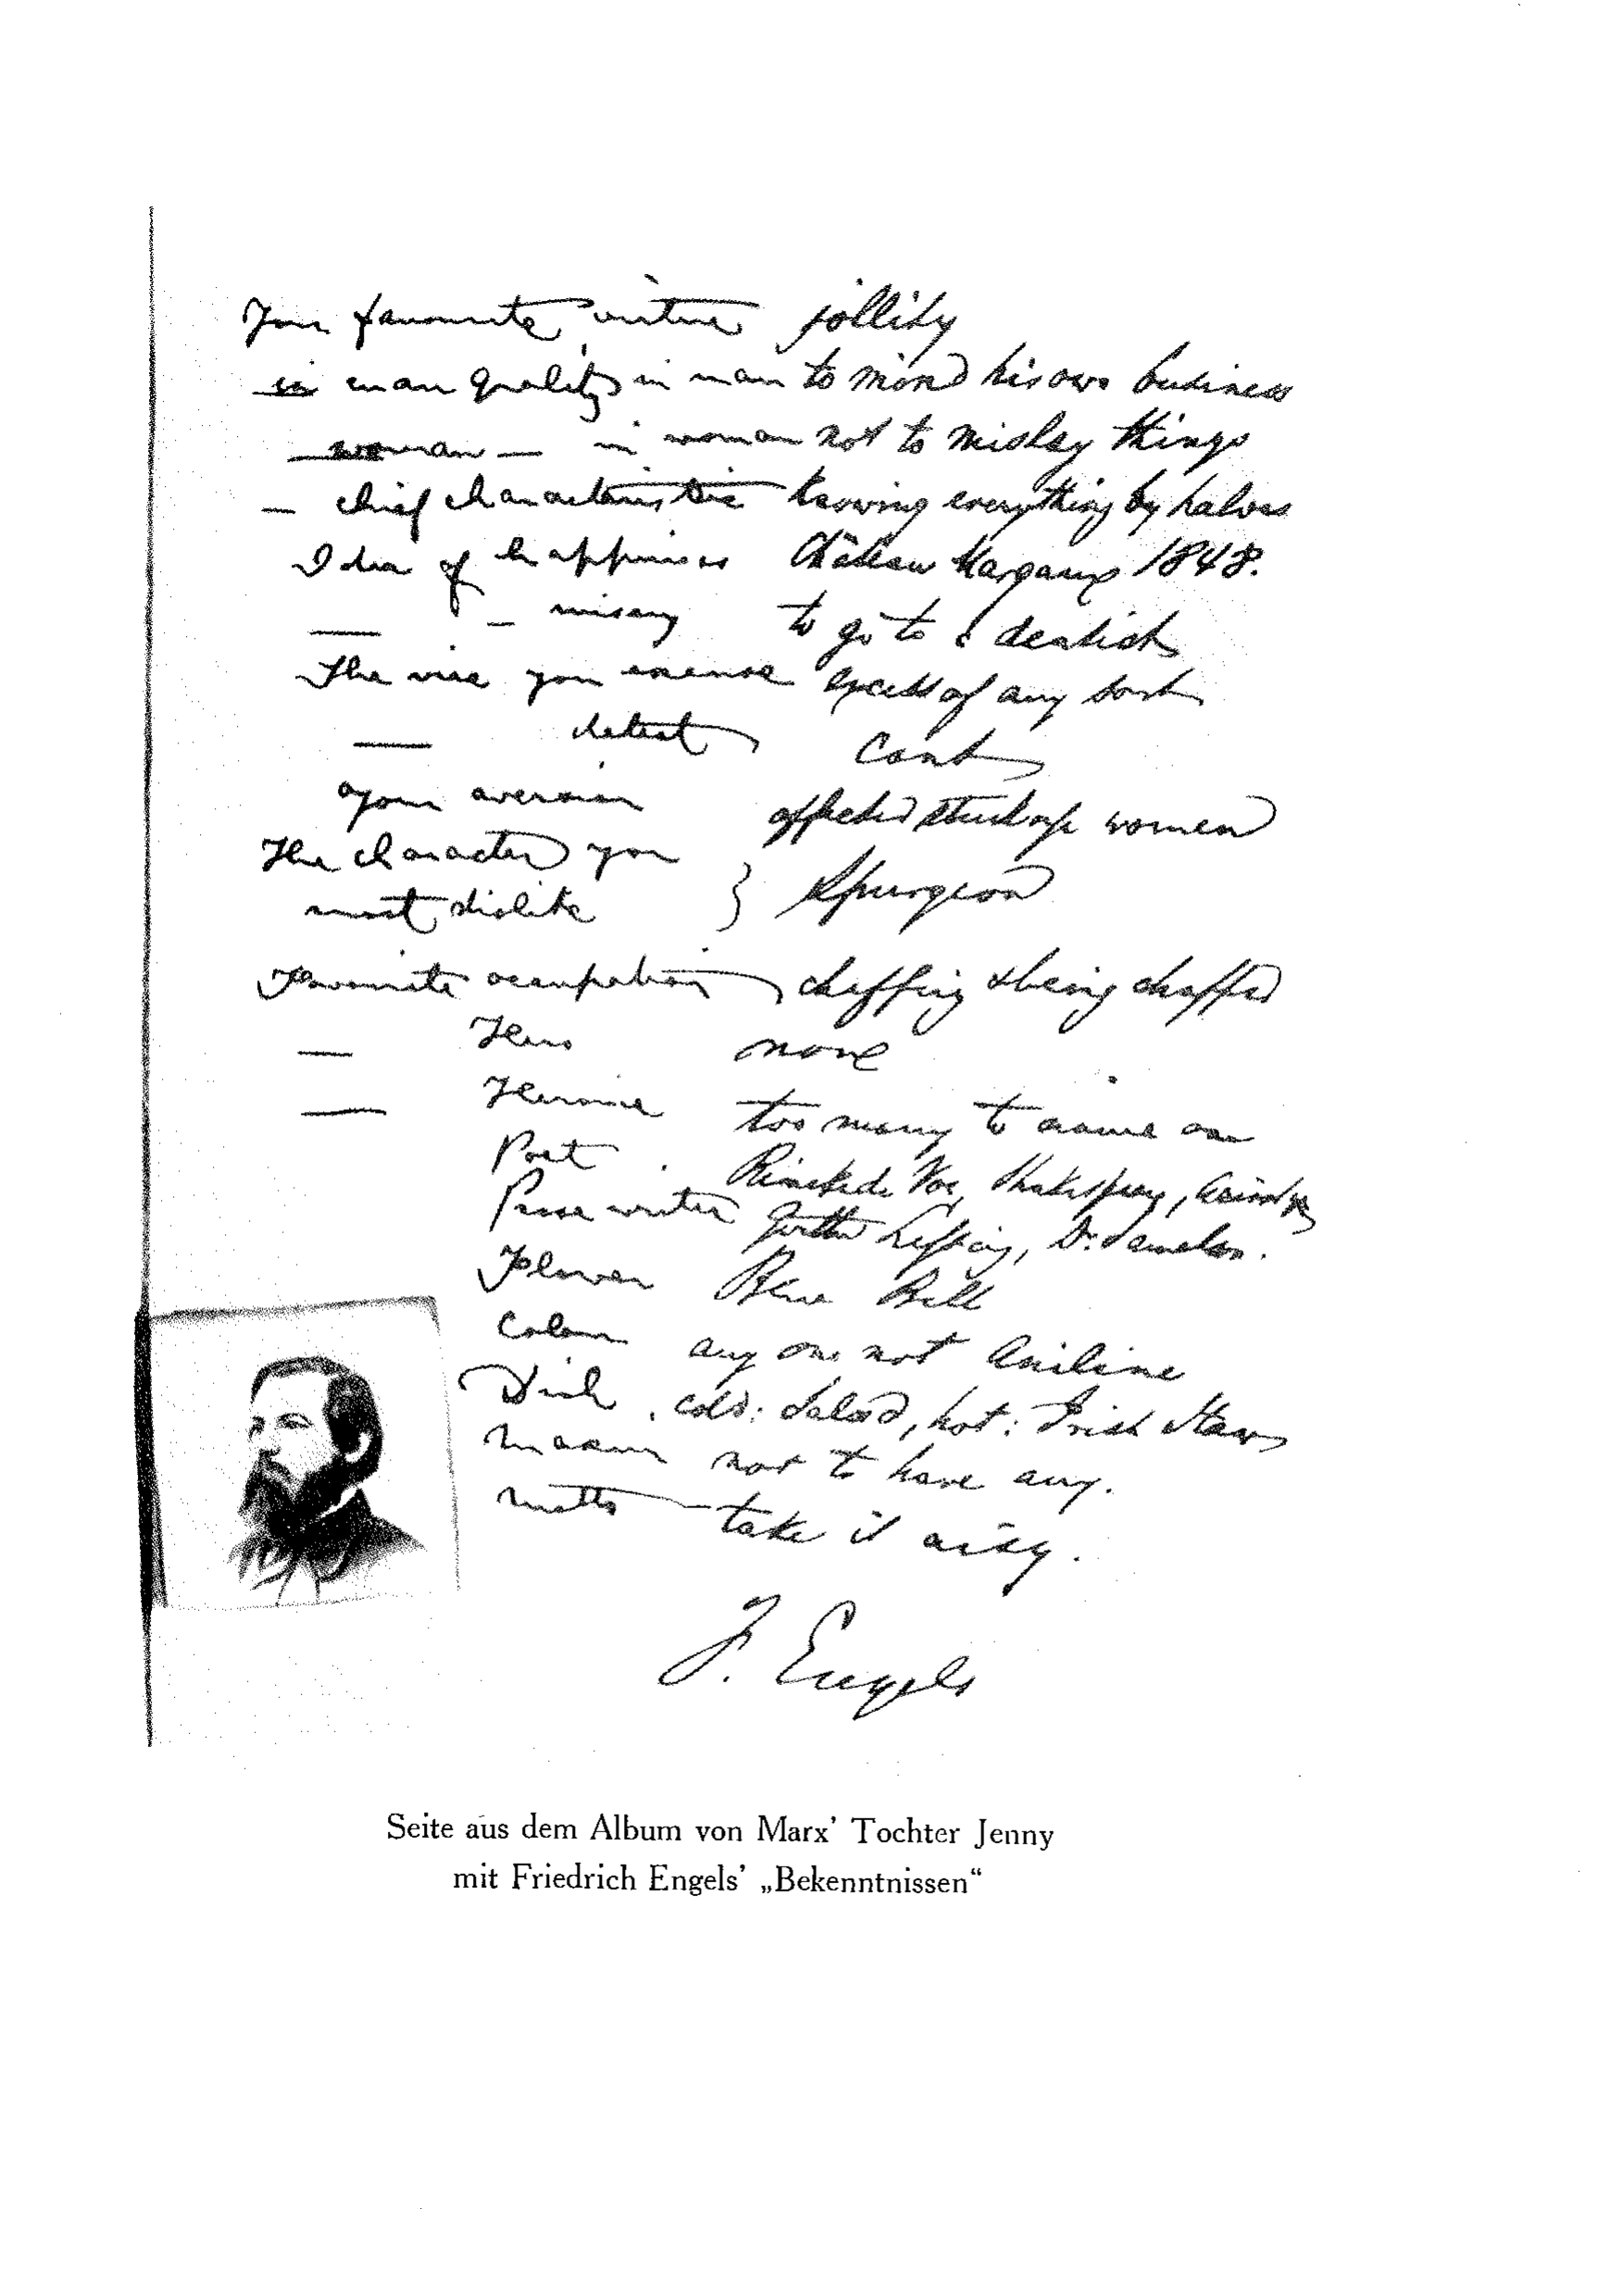 Your favourite virtue jollity
in man quality in man to mind his own business
— woman — in woman not to mislay things
— chief characteristic knowing everything by halves
Idea of happiness Château Margaux 1848.
— — misery to go to a dentist
The vice you excuse excess of any sort
— detest Cant
Your aversion affected stuck up women
The character you
most dislike } Spurgeon
Favourite occupation chaffing & being chaffed
— Hero none
— Heroine too many to name one
Poet Reineke de Vos, Shakespeare, Ariosto
Prose writer Goethe Lessing, Dr. Samelson.
Flower Blue Bell
Colour any one not Aniline
Dish cold: Salad, hot: Irish Stew
Maxim not to have any.
Motto — take it aisy.
F. Engels
Seite aus dem Album von Marx’ Tochter Jenny
mit Friedrich Engels’ „Bekenntnissen“